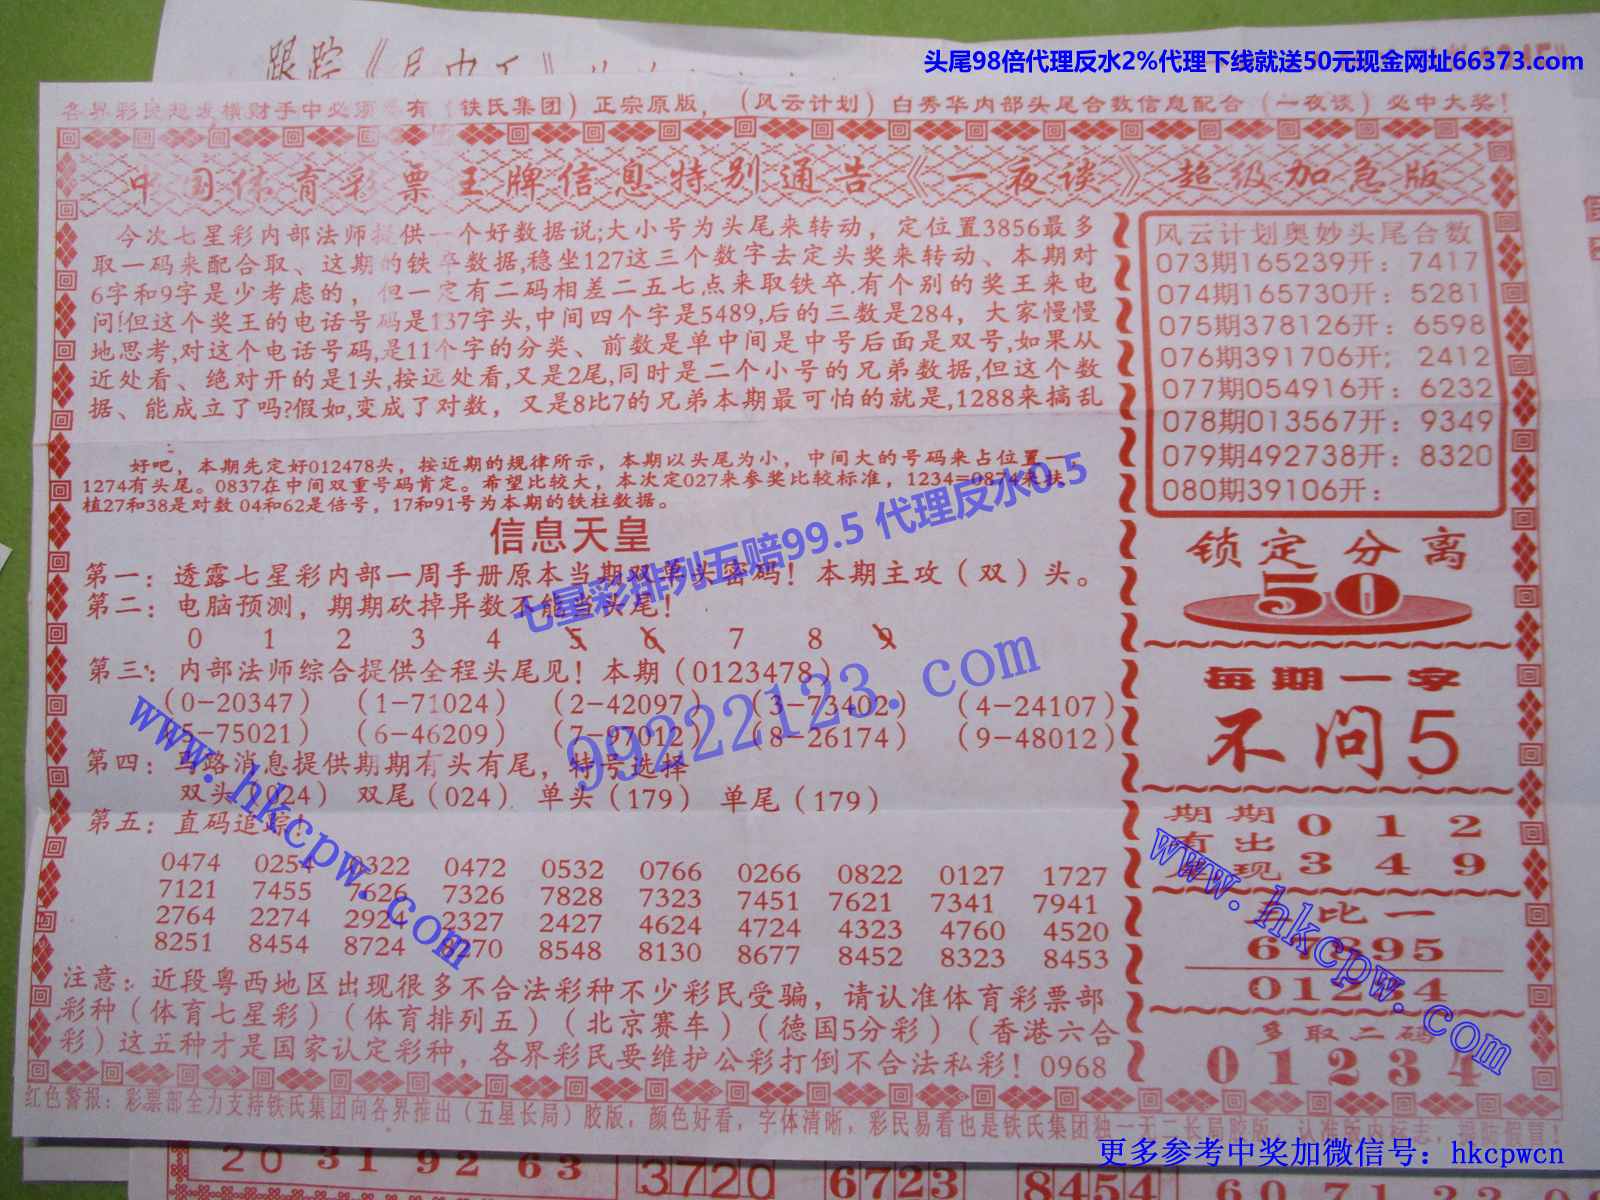 头尾98倍代理反水2%代理下线就送50元现金网址66373.com
跟踪《
各界彩民想发横财手中必须 有（铁氏集团）正宗原版，（风云计划）白秀华内部头尾合数信息配合（一夜谈）必中大奖！
中国体育彩票王牌信息特别通告《一夜谈》超级加急版
今次七星彩内部法师提供一个好数据说;大小号为头尾来转动，定位置3856最多
取一码来配合取、这期的铁卒数据,稳坐127这三个数字去定头奖来转动、本期对
6字和9字是少考虑的，但一定有二码相差二五七点来取铁卒.有个别的奖王来电
问!但这个奖王的电话号码是137字头,中间四个字是5489,后的三数是284，大家慢慢
地思考,对这个电话号码,是11个字的分类、前数是单中间是中号后面是双号,如果从
近处看、绝对开的是1头,按远处看,又是2尾,同时是二个小号的兄弟数据,但这个数
据、能成立了吗?假如,变成了对数，又是8比7的兄弟本期最可怕的就是,1288来搞乱
好吧，本期先定好012478头，按近期的规律所示，本期以头尾为小，中间大的号码来占位置一
1274有头尾。0837在中间双重号码肯定。希望比较大，本次定027来参奖比较标准，1234=0874来扶
植27和38是对数 04和62是倍号，17和91号为本期的铁柱数据。
信息天皇
第一：透露七星彩内部一周手册原本当期双单头密码！本期主攻（双）头。
第二：电脑预测，期期砍掉异数不能当头尾！
0 1 2 3 4 5 6 7 8 9
第三：内部法师综合提供全程头尾见！本期（0123478）
（0-20347）（1-71024）（2-42097）（3-73402）（4-24107）
（5-75021）（6-46209）（7-97012）（8-26174）（9-48012）
第四：马路消息提供期期有头有尾，特号选择
双头（024） 双尾（024） 单头（179） 单尾（179）
第五：直码追踪！
0474 0254 0322 0472 0532 0766 0266 0822 0127 1727
7121 7455 7626 7326 7828 7323 7451 7621 7341 7941
2764 2274 2924 2327 2427 4624 4724 4323 4760 4520
8251 8454 8724 8270 8548 8130 8677 8452 8323 8453
注意：近段粤西地区出现很多不合法彩种不少彩民受骗，请认准体育彩票部
彩种（体育七星彩）（体育排列五）（北京赛车）（德国5分彩）（香港六合
彩）这五种才是国家认定彩种，各界彩民要维护公彩打倒不合法私彩！0968
风云计划奥妙头尾合数
073期165239开：7417
074期165730开：5281
075期378126开：6598
076期391706开；2412
077期054916开：6232
078期013567开：9349
079期492738开：8320
080期39106开：
锁定分离
50
每期一字
不问5
期期 0 1 2
有出
现 3 4 9
比一
67895
01234
多取二码
0 1 2 3 4
红色警报：彩票部全力支持铁氏集团向各界推出（五星长局）胶版，颜色好看，字体清晰，彩民易看也是铁氏集团独一无二长局胶版，认准版内标志，提防假冒！
七星彩排列五赔99.5 代理反水0.5
99222123.com
www.hkcpw.com
www.hkcpw.com
更多参考中奖加微信号：hkcpwcn
20 31 92 63 3720 6723 8454